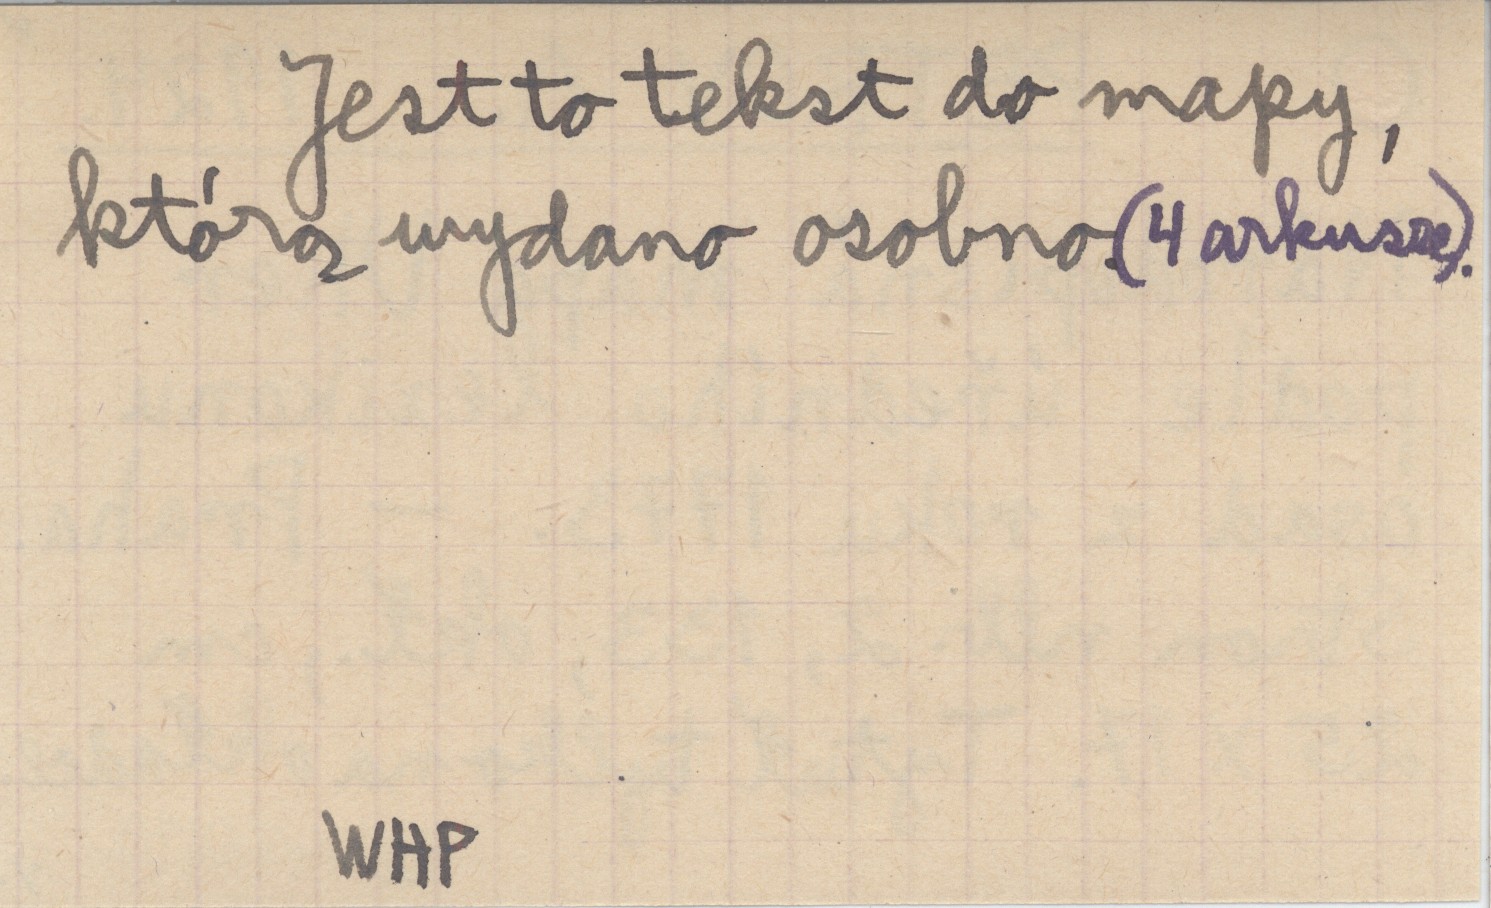 Jest to tekst do mapy,
którą wydano osobno. (4 arkusze).
WHP